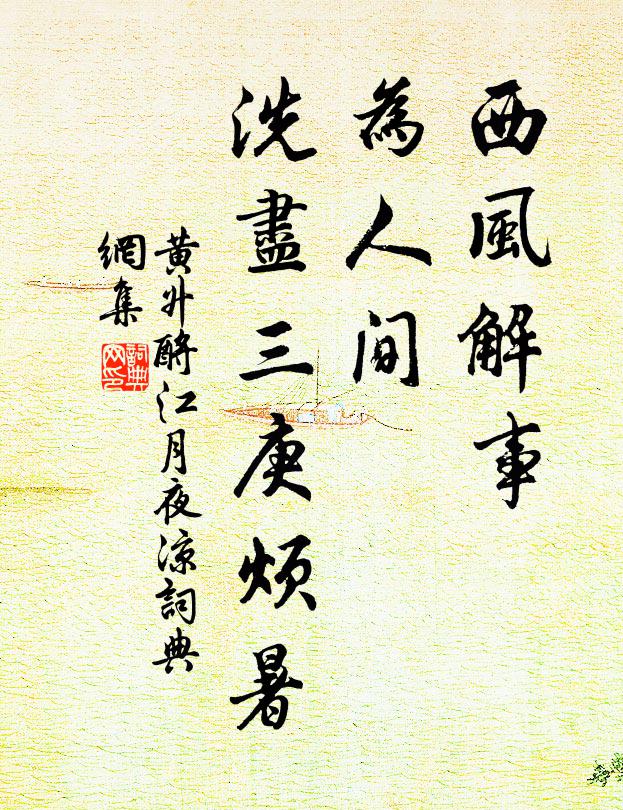 西風解事
為人間
洗盡三庚煩暑
黃升酹江月夜涼詞典
網集
詞典網印